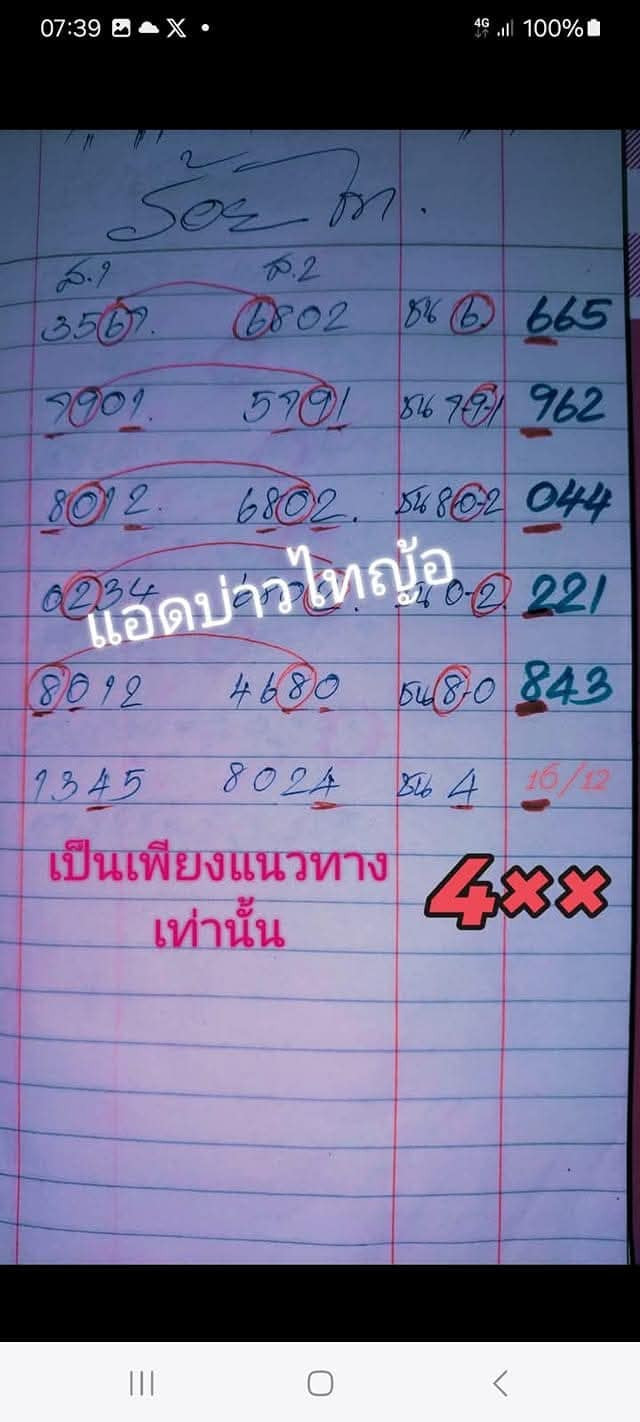 07:39 X 4G 100%
ร้อย ไท.
ส.1 ส.2
3567. 6802 ชน 6. 665
7901. 5791 ชน 7-9-1 962
8012. 6802. ชน 8-0-2 044
0234 ชน 0-2. 221
แอดบ่าวไทญ้อ
8012 4680 ชน 8-0 843
1345 8024 ชน 4 16/12
เป็นเพียงแนวทาง 4××
เท่านั้น